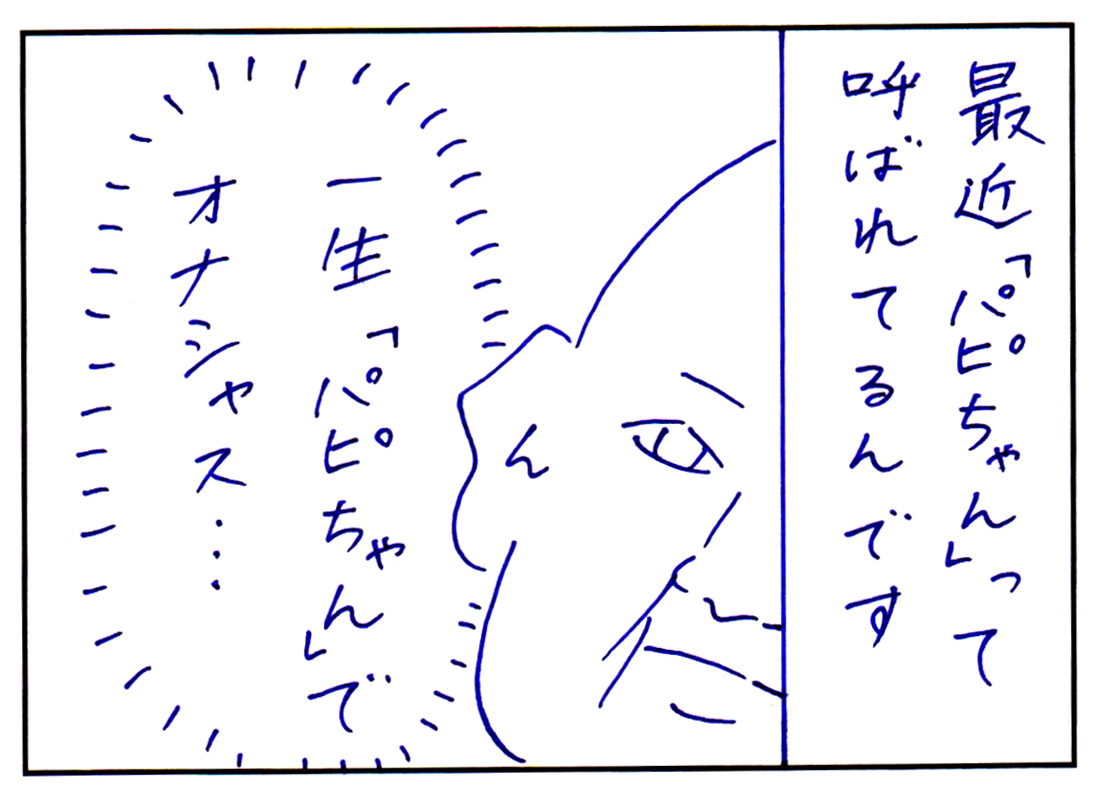 最近「パピちゃん」って
呼ばれてるんです
一生「パピちゃん」で
オナシャス…